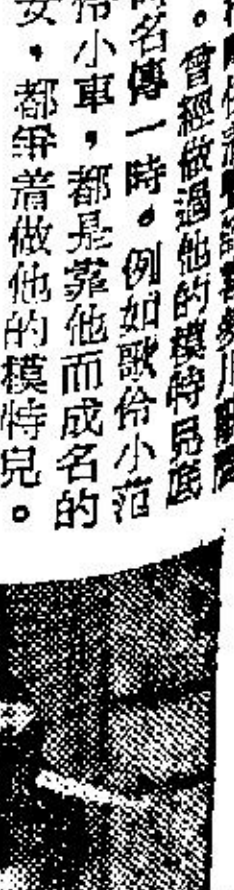 。曾經做過他的模特兒底
名傳一時。例如歌伶小范
伶小車，都是靠他而成名的
女，都爭着做他的模特兒。